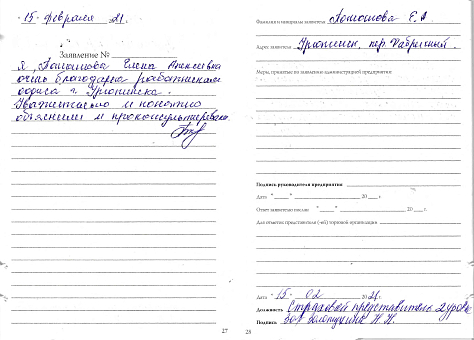 "15" февраля 21 г.
Заявление №
Я, Помошова Елена Алексеевна
очень благодарна работникам
офиса г. Урюпинска.
Уважительно и понятно
объяснили и проконсультировали.
27
Фамилия и инициалы заявителя Помошова Е.А
Адрес заявителя г. Урюпинск, пер Фабричный.
Меры, принятые по заявлению администрацией предприятия:
Подпись руководителя предприятия
Дата "___" ___ 20__ г.
Ответ заявителю послан "___" ___ 20__ г.
Для отметок представителя (-ей) торговой организации
Дата "15" 02 2021 г.
Должность Страховой представитель
Подпись Н. Н.
28